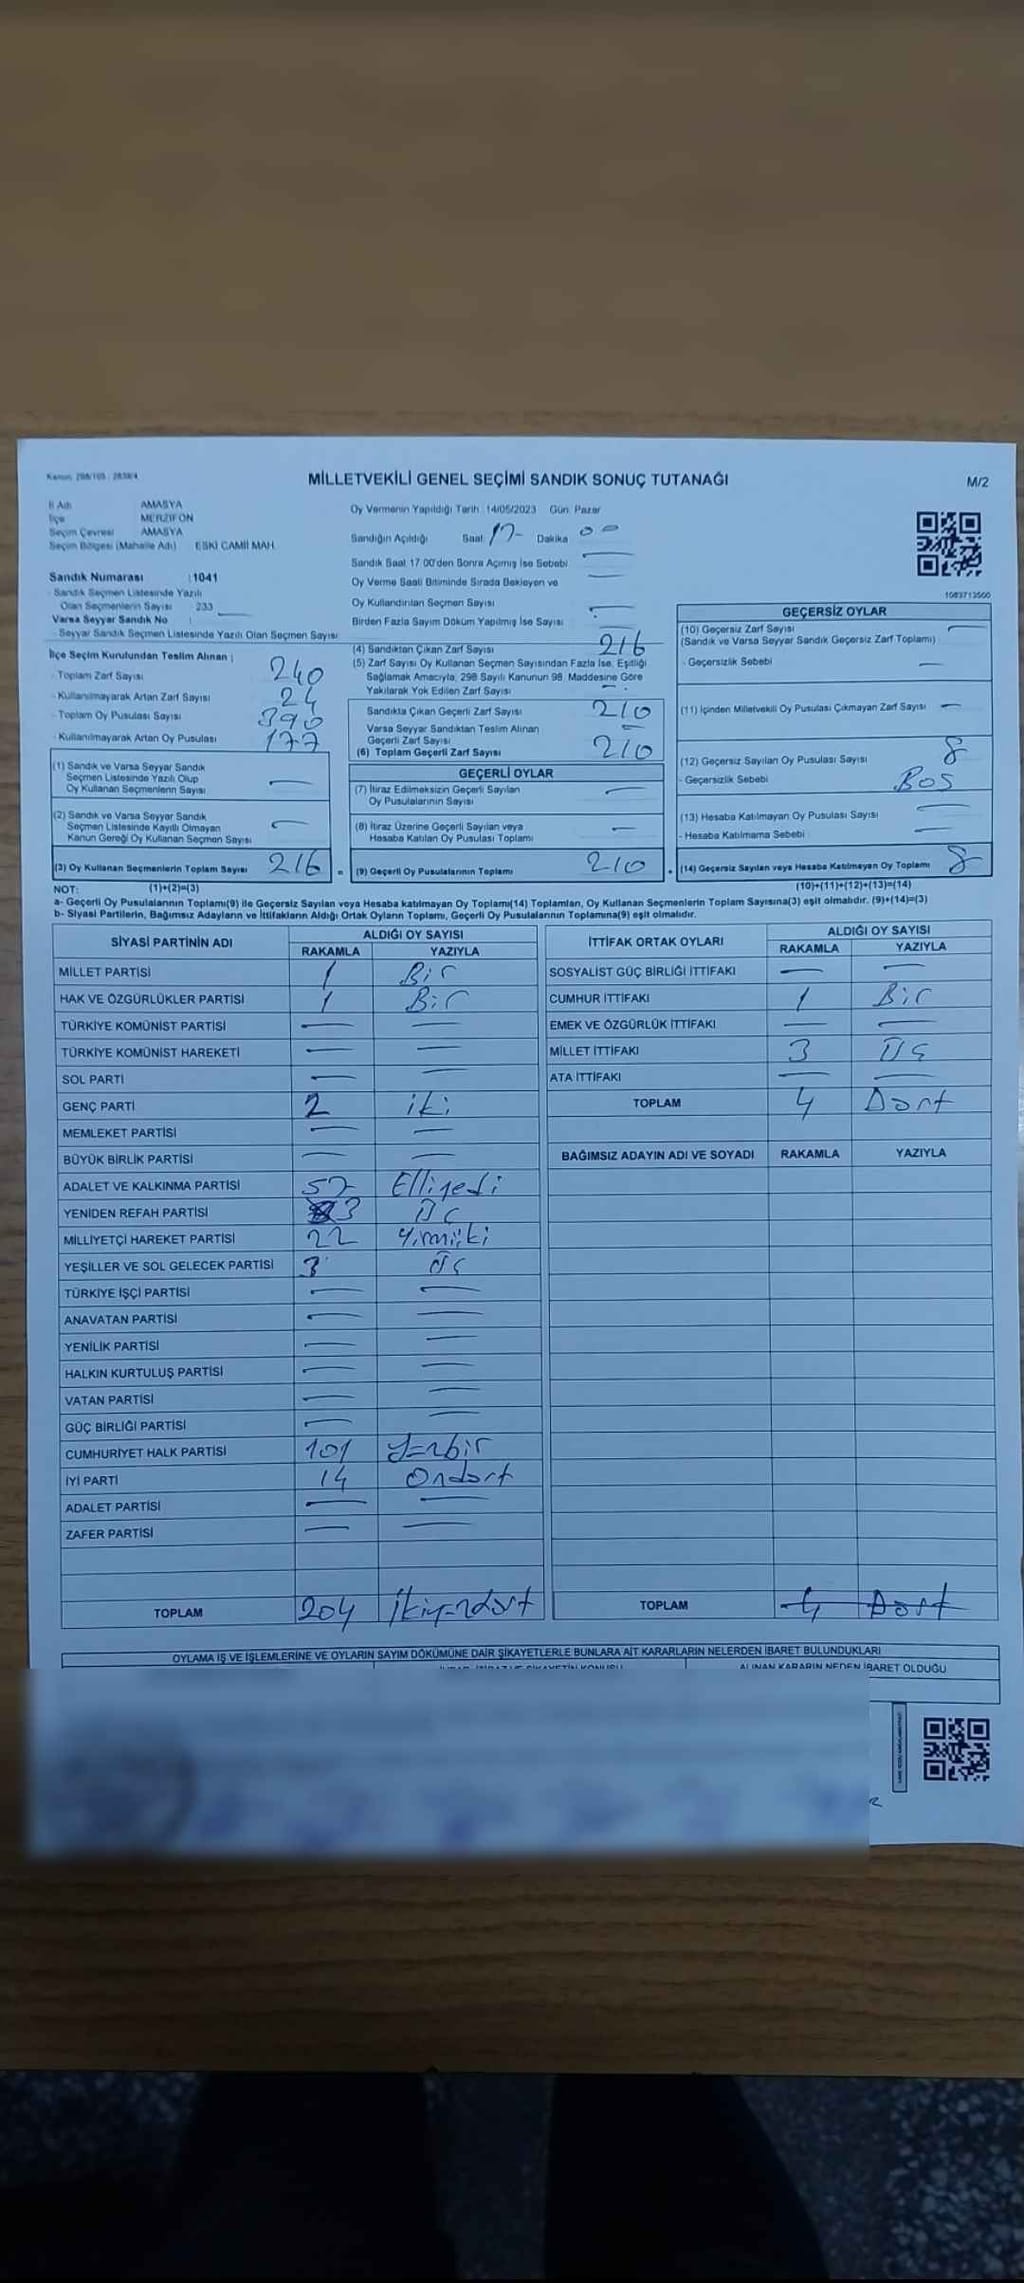 Kanun: 298/105 - 2839/4
MİLLETVEKİLİ GENEL SEÇİMİ SANDIK SONUÇ TUTANAĞI
M/2
İl Adı AMASYA
İlçe MERZİFON
Seçim Çevresi AMASYA
Seçim Bölgesi (Mahalle Adı) ESKİ CAMİİ MAH.
Oy Vermenin Yapıldığı Tarih: 14/05/2023 Gün: Pazar
Sandığın Açıldığı Saat: 17- Dakika 00
Sandık Saat 17:00'den Sonra Açılmış İse Sebebi —
Oy Verme Saati Bitiminde Sırada Bekleyen ve
Oy Kullandırılan Seçmen Sayısı —
Birden Fazla Sayım Döküm Yapılmış İse Sayısı —
Sandık Numarası : 1041
- Sandık Seçmen Listesinde Yazılı
Olan Seçmenlerin Sayısı : 233
Varsa Seyyar Sandık No :
- Seyyar Sandık Seçmen Listesinde Yazılı Olan Seçmen Sayısı
1083713500
İlçe Seçim Kurulundan Teslim Alınan ;
- Toplam Zarf Sayısı 240
- Kullanılmayarak Artan Zarf Sayısı 24
- Toplam Oy Pusulası Sayısı 390
- Kullanılmayarak Artan Oy Pusulası 177
(1) Sandık ve Varsa Seyyar Sandık
Seçmen Listesinde Yazılı Olup
Oy Kullanan Seçmenlerin Sayısı —
(2) Sandık ve Varsa Seyyar Sandık
Seçmen Listesinde Kayıtlı Olmayan
Kanun Gereği Oy Kullanan Seçmen Sayısı —
(3) Oy Kullanan Seçmenlerin Toplam Sayısı 216
(4) Sandıktan Çıkan Zarf Sayısı 216
(5) Zarf Sayısı Oy Kullanan Seçmen Sayısından Fazla İse, Eşitliği
Sağlamak Amacıyla, 298 Sayılı Kanunun 98. Maddesine Göre
Yakılarak Yok Edilen Zarf Sayısı —
Sandıkta Çıkan Geçerli Zarf Sayısı 210
Varsa Seyyar Sandıktan Teslim Alınan
Geçerli Zarf Sayısı —
(6) Toplam Geçerli Zarf Sayısı 210
GEÇERLİ OYLAR
(7) İtiraz Edilmeksizin Geçerli Sayılan
Oy Pusulalarının Sayısı —
(8) İtiraz Üzerine Geçerli Sayılan veya
Hesaba Katılan Oy Pusulası Toplamı —
(9) Geçerli Oy Pusulalarının Toplamı 210
GEÇERSİZ OYLAR
(10) Geçersiz Zarf Sayısı —
(Sandık ve Varsa Seyyar Sandık Geçersiz Zarf Toplamı)
- Geçersizlik Sebebi —
(11) İçinden Milletvekili Oy Pusulası Çıkmayan Zarf Sayısı —
(12) Geçersiz Sayılan Oy Pusulası Sayısı 8
- Geçersizlik Sebebi BOŞ
(13) Hesaba Katılmayan Oy Pusulası Sayısı —
- Hesaba Katılmama Sebebi —
(14) Geçersiz Sayılan veya Hesaba Katılmayan Oy Toplamı 8
NOT: (1)+(2)=(3) (10)+(11)+(12)+(13)=(14)
a- Geçerli Oy Pusulalarının Toplamı(9) ile Geçersiz Sayılan veya Hesaba katılmayan Oy Toplamı(14) Toplamları, Oy Kullanan Seçmenlerin Toplam Sayısına(3) eşit olmalıdır. (9)+(14)=(3)
b- Siyasi Partilerin, Bağımsız Adayların ve İttifakların Aldığı Ortak Oyların Toplamı, Geçerli Oy Pusulalarının Toplamına(9) eşit olmalıdır.
SİYASİ PARTİNİN ADI ALDIĞI OY SAYISI
RAKAMLA YAZIYLA
MİLLET PARTİSİ 1 Bir
HAK VE ÖZGÜRLÜKLER PARTİSİ 1 Bir
TÜRKİYE KOMÜNİST PARTİSİ — —
TÜRKİYE KOMÜNİST HAREKETİ — —
SOL PARTİ — —
GENÇ PARTİ 2 iki
MEMLEKET PARTİSİ — —
BÜYÜK BİRLİK PARTİSİ — —
ADALET VE KALKINMA PARTİSİ 57 Elliyedi
YENİDEN REFAH PARTİSİ 3 Üç
MİLLİYETÇİ HAREKET PARTİSİ 22 Yirmiiki
YEŞİLLER VE SOL GELECEK PARTİSİ 3 Üç
TÜRKİYE İŞÇİ PARTİSİ — —
ANAVATAN PARTİSİ — —
YENİLİK PARTİSİ — —
HALKIN KURTULUŞ PARTİSİ — —
VATAN PARTİSİ — —
GÜÇ BİRLİĞİ PARTİSİ — —
CUMHURİYET HALK PARTİSİ 101 Yüzbir
İYİ PARTİ 14 Ondört
ADALET PARTİSİ — —
ZAFER PARTİSİ — —
TOPLAM 204 İkiyüzdört
İTTİFAK ORTAK OYLARI ALDIĞI OY SAYISI
RAKAMLA YAZIYLA
SOSYALİST GÜÇ BİRLİĞİ İTTİFAKI — —
CUMHUR İTTİFAKI 1 Bir
EMEK VE ÖZGÜRLÜK İTTİFAKI — —
MİLLET İTTİFAKI 3 Üç
ATA İTTİFAKI — —
TOPLAM 4 Dört
BAĞIMSIZ ADAYIN ADI VE SOYADI RAKAMLA YAZIYLA
TOPLAM 4 Dört
OYLAMA İŞ VE İŞLEMLERİNE VE OYLARIN SAYIM DÖKÜMÜNE DAİR ŞİKAYETLERLE BUNLARA AİT KARARLARIN NELERDEN İBARET BULUNDUKLARI
ALINAN KARARIN NEDEN İBARET OLDUĞU